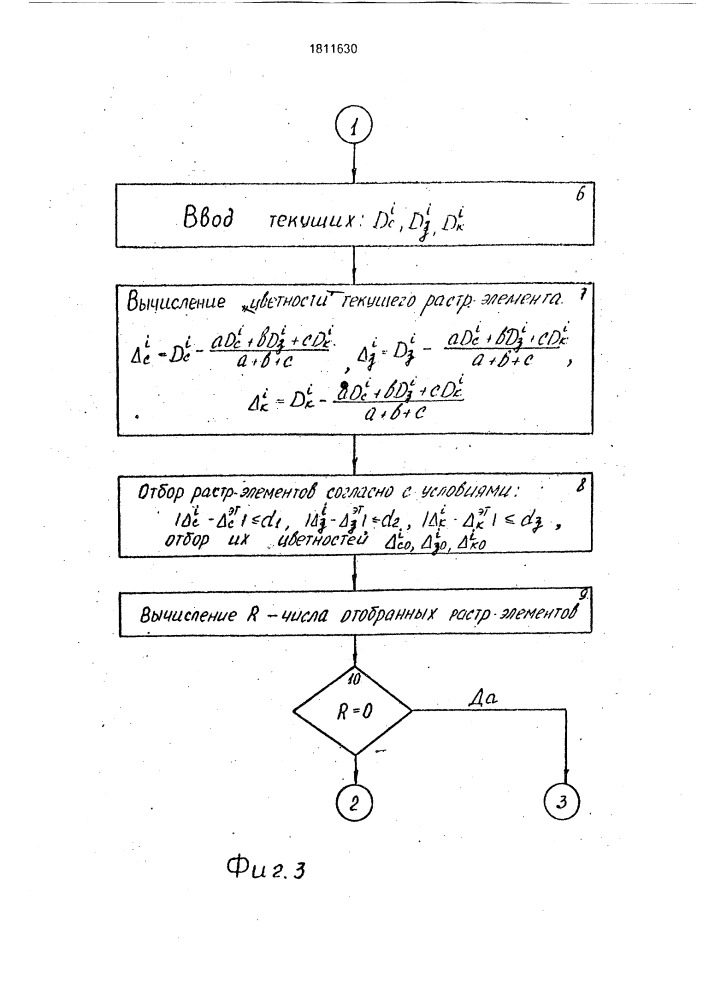 1811630
1
6
Ввод текущих: Dсⁱ, Dзⁱ, Dкⁱ
7
Вычисление „цветности" текущего растр-элемента.
Δсⁱ = Dсⁱ - (aDсⁱ + вDзⁱ + cDкⁱ)/(a+в+c), Δзⁱ = Dзⁱ - (aDсⁱ + вDзⁱ + cDкⁱ)/(a+в+c),
Δкⁱ = Dкⁱ - (aDсⁱ + вDзⁱ + cDкⁱ)/(a+в+c)
8
Отбор растр-элементов согласно с условиями:
|Δсⁱ - Δсᵉᵀ| ≤ d1, |Δзⁱ - Δзᵉᵀ| ≤ d2, |Δкⁱ - Δкᵉᵀ| ≤ d3,
отбор их цветностей Δсоⁱ, Δзоⁱ, Δкоⁱ
9
Вычисление R – числа отобранных растр-элементов
10
R = 0
Да
2
3
Фиг. 3